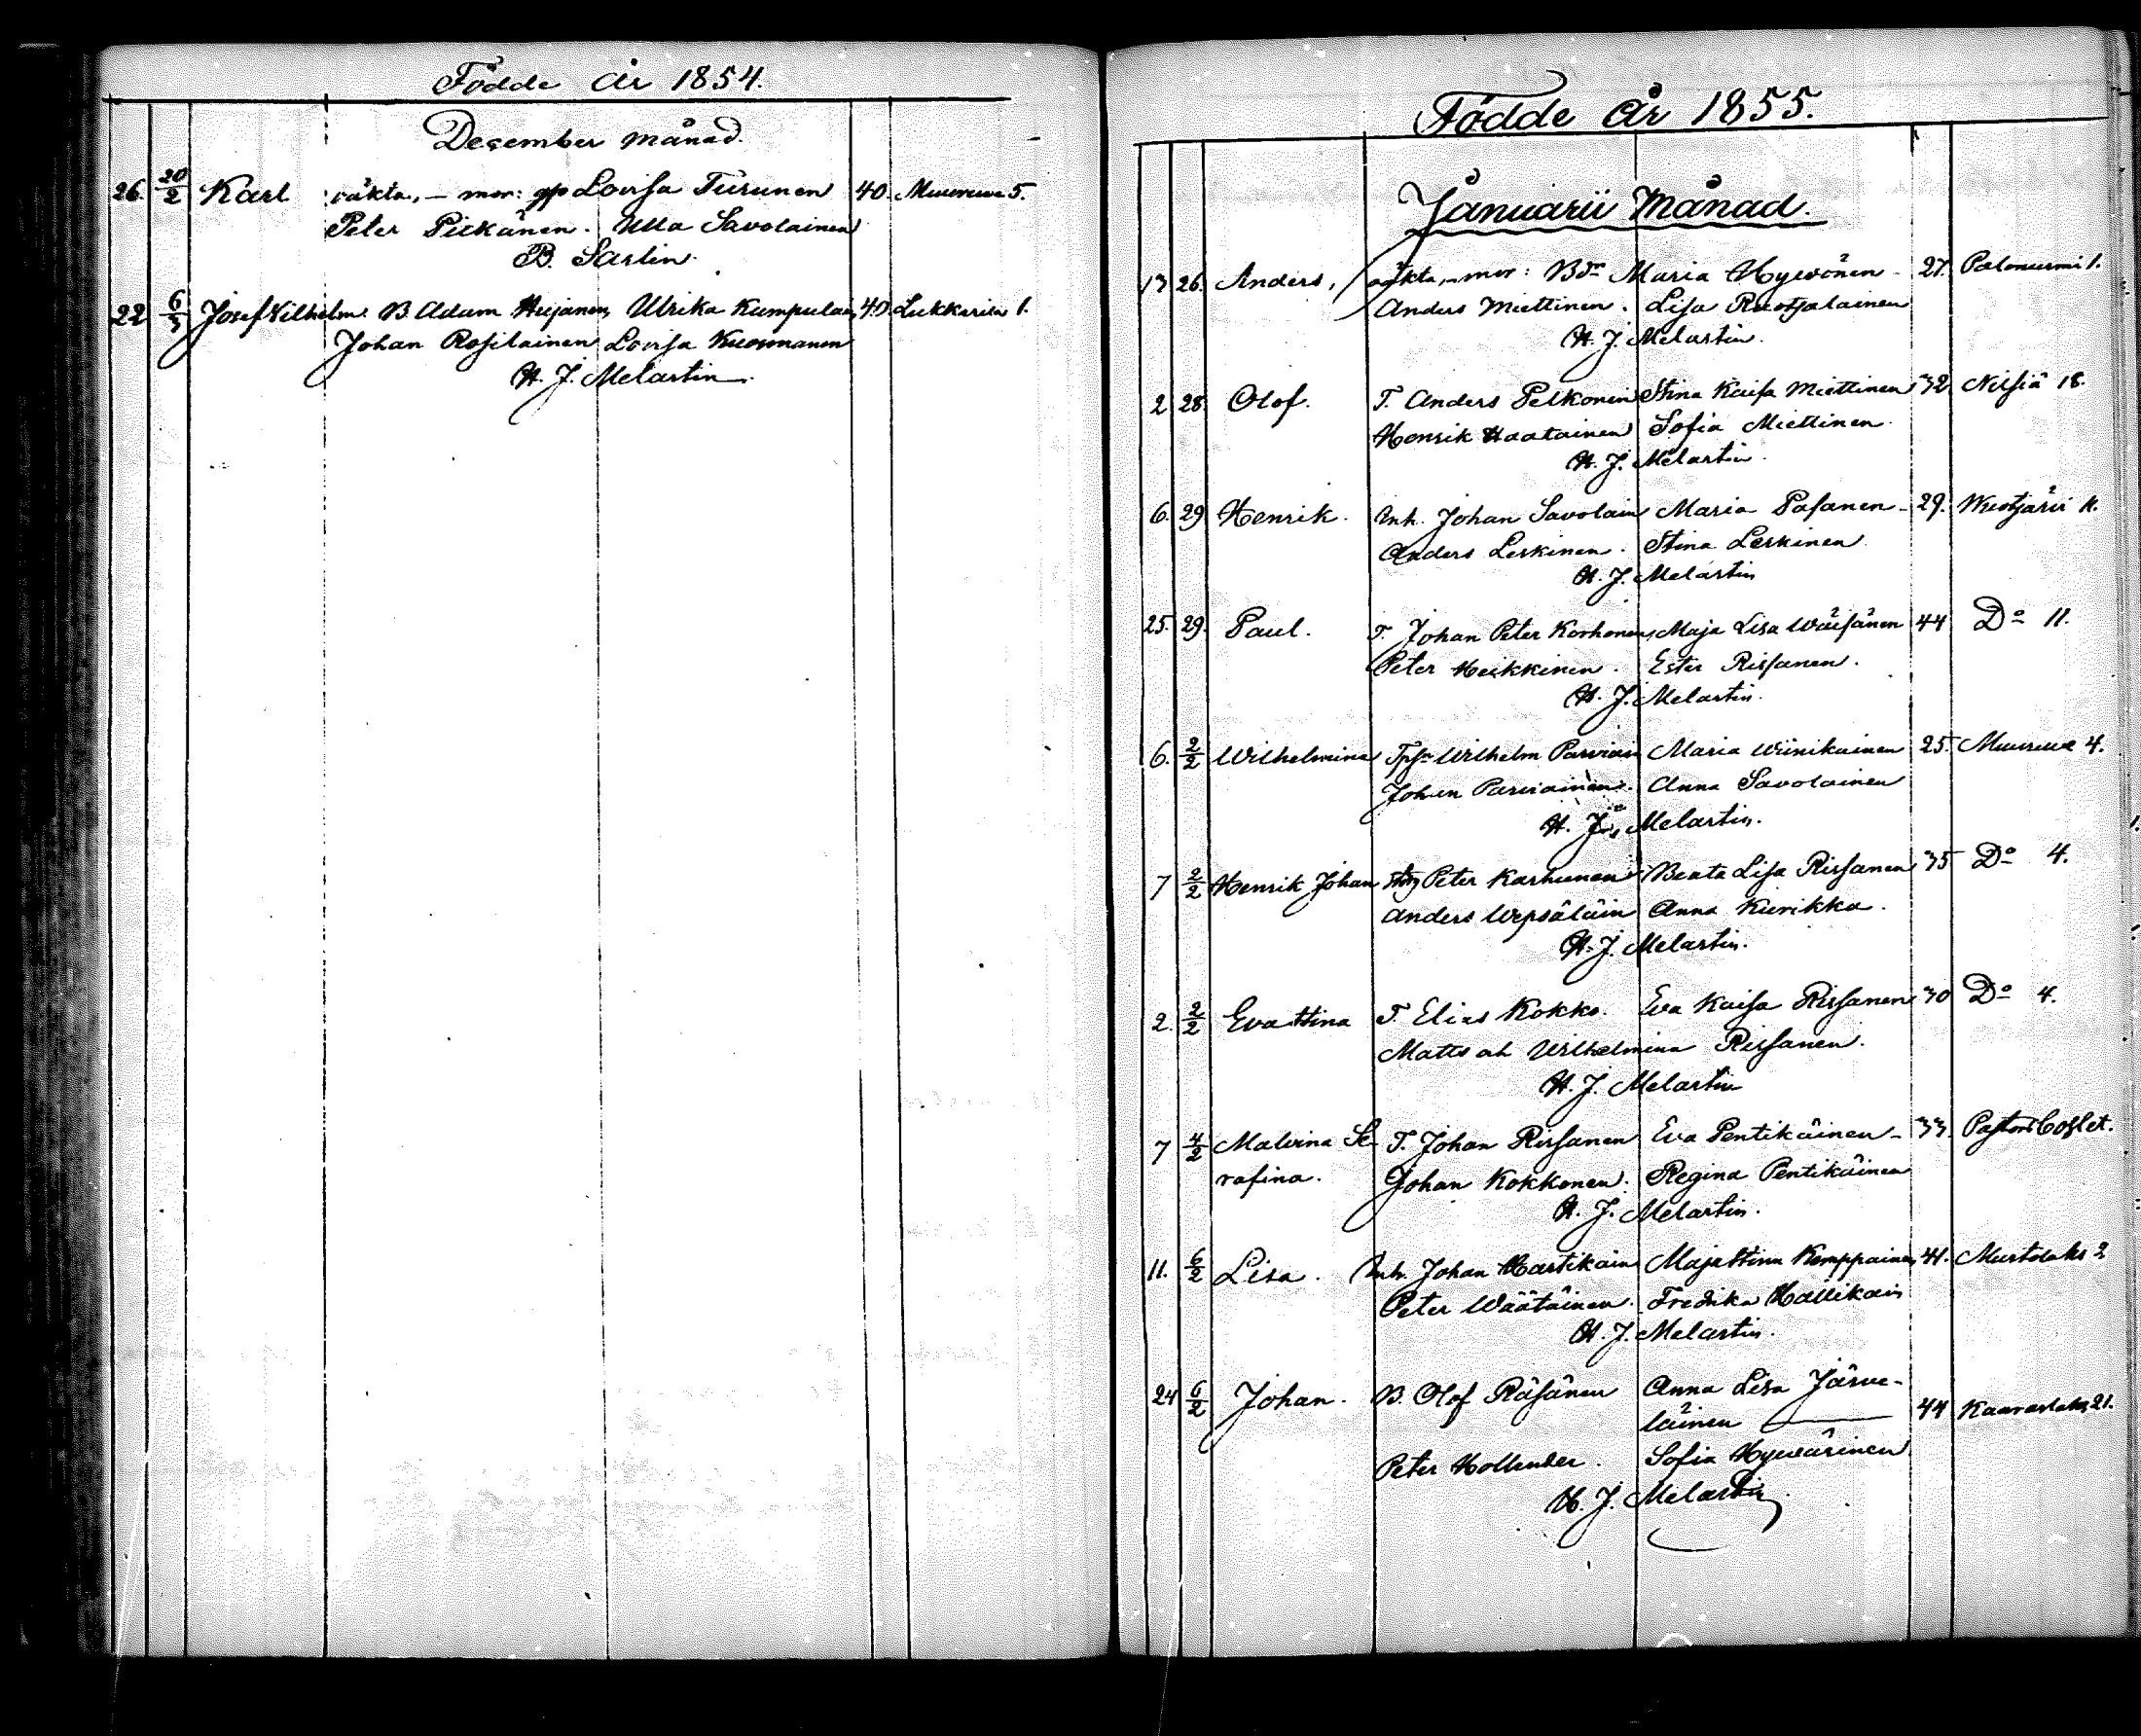 Födde År 1854.
December månad.
26. 20/2 Karl oäkta, – mor: gp Lovisa Turunen 40. Muuruwe 5.
Peter Pitkänen. Ulla Savolainen
B. Sartin.
22 6/3 Josef Vilhelm B. Adam Hujanen, Ulrika Kumpulain, 40 Lukkarila 1.
Johan Rosilainen Lovisa Kuosmanen
H. J. Melartin.
Födde År 1855.
Januarii Månad.
13 26. Anders, oäkta, – mor: Bdr Maria Hywönen – 27. Palonurmi 1.
Anders Miettinen. Lisa Ruotsalainen
H. J. Melartin.
2 28. Olof. T. Anders Pelkonen Stina Kaisa Miettinen 32 Nilsiä 18.
Henrik Haatainen Sofia Miettinen.
H. J. Melartin.
6. 29 Henrik. Inh. Johan Savolain Maria Pasanen – 29. Wuotjärvi 11.
Anders Leskinen. Stina Leskinen
H. J. Melartin
25. 29. Paul. T. Johan Peter Korhonen, Maja Lisa Wäisänen 44 Do 11.
Peter Heikkinen. Ester Rissanen.
H. J. Melartin.
6. 2/2 Wilhelmina Wilhelm Parviain Maria Wiinikainen 25. Muuruwe 4.
Johan Parviainen. Anna Savolainen
H. J. Melartin.
7 2/2 Henrik Johan Peter Karhunen Beata Lisa Rissanen 35 Do 4.
Anders Wepsäläin Anna Kurikka.
H. J. Melartin.
2. 2/2 Eva Stina T. Elias Kokko. Eva Kaisa Rissanen 30 Do 4.
Matts och Wilhelmina Rissanen.
H. J. Melartin
7 4/2 Malvina Se- T. Johan Rissanen Eva Pentikäinen – 33. Pastors Bostet.
rafina. Johan Kokkonen. Regina Pentikäinen
H. J. Melartin.
11. 6/2 Lisa. Inh. Johan Hartikain Maja Stina Kemppainen, 41. Murtolaks 2
Peter Wäätäinen. Fredrika Hallikain
H. J. Melartin.
24 6/2 Johan. B. Olof Räsänen Anna Lisa Järve-
läinen 44 Kaavaslaks 21.
Peter Hollender. Sofia Hywärinen
H. J. Melartin